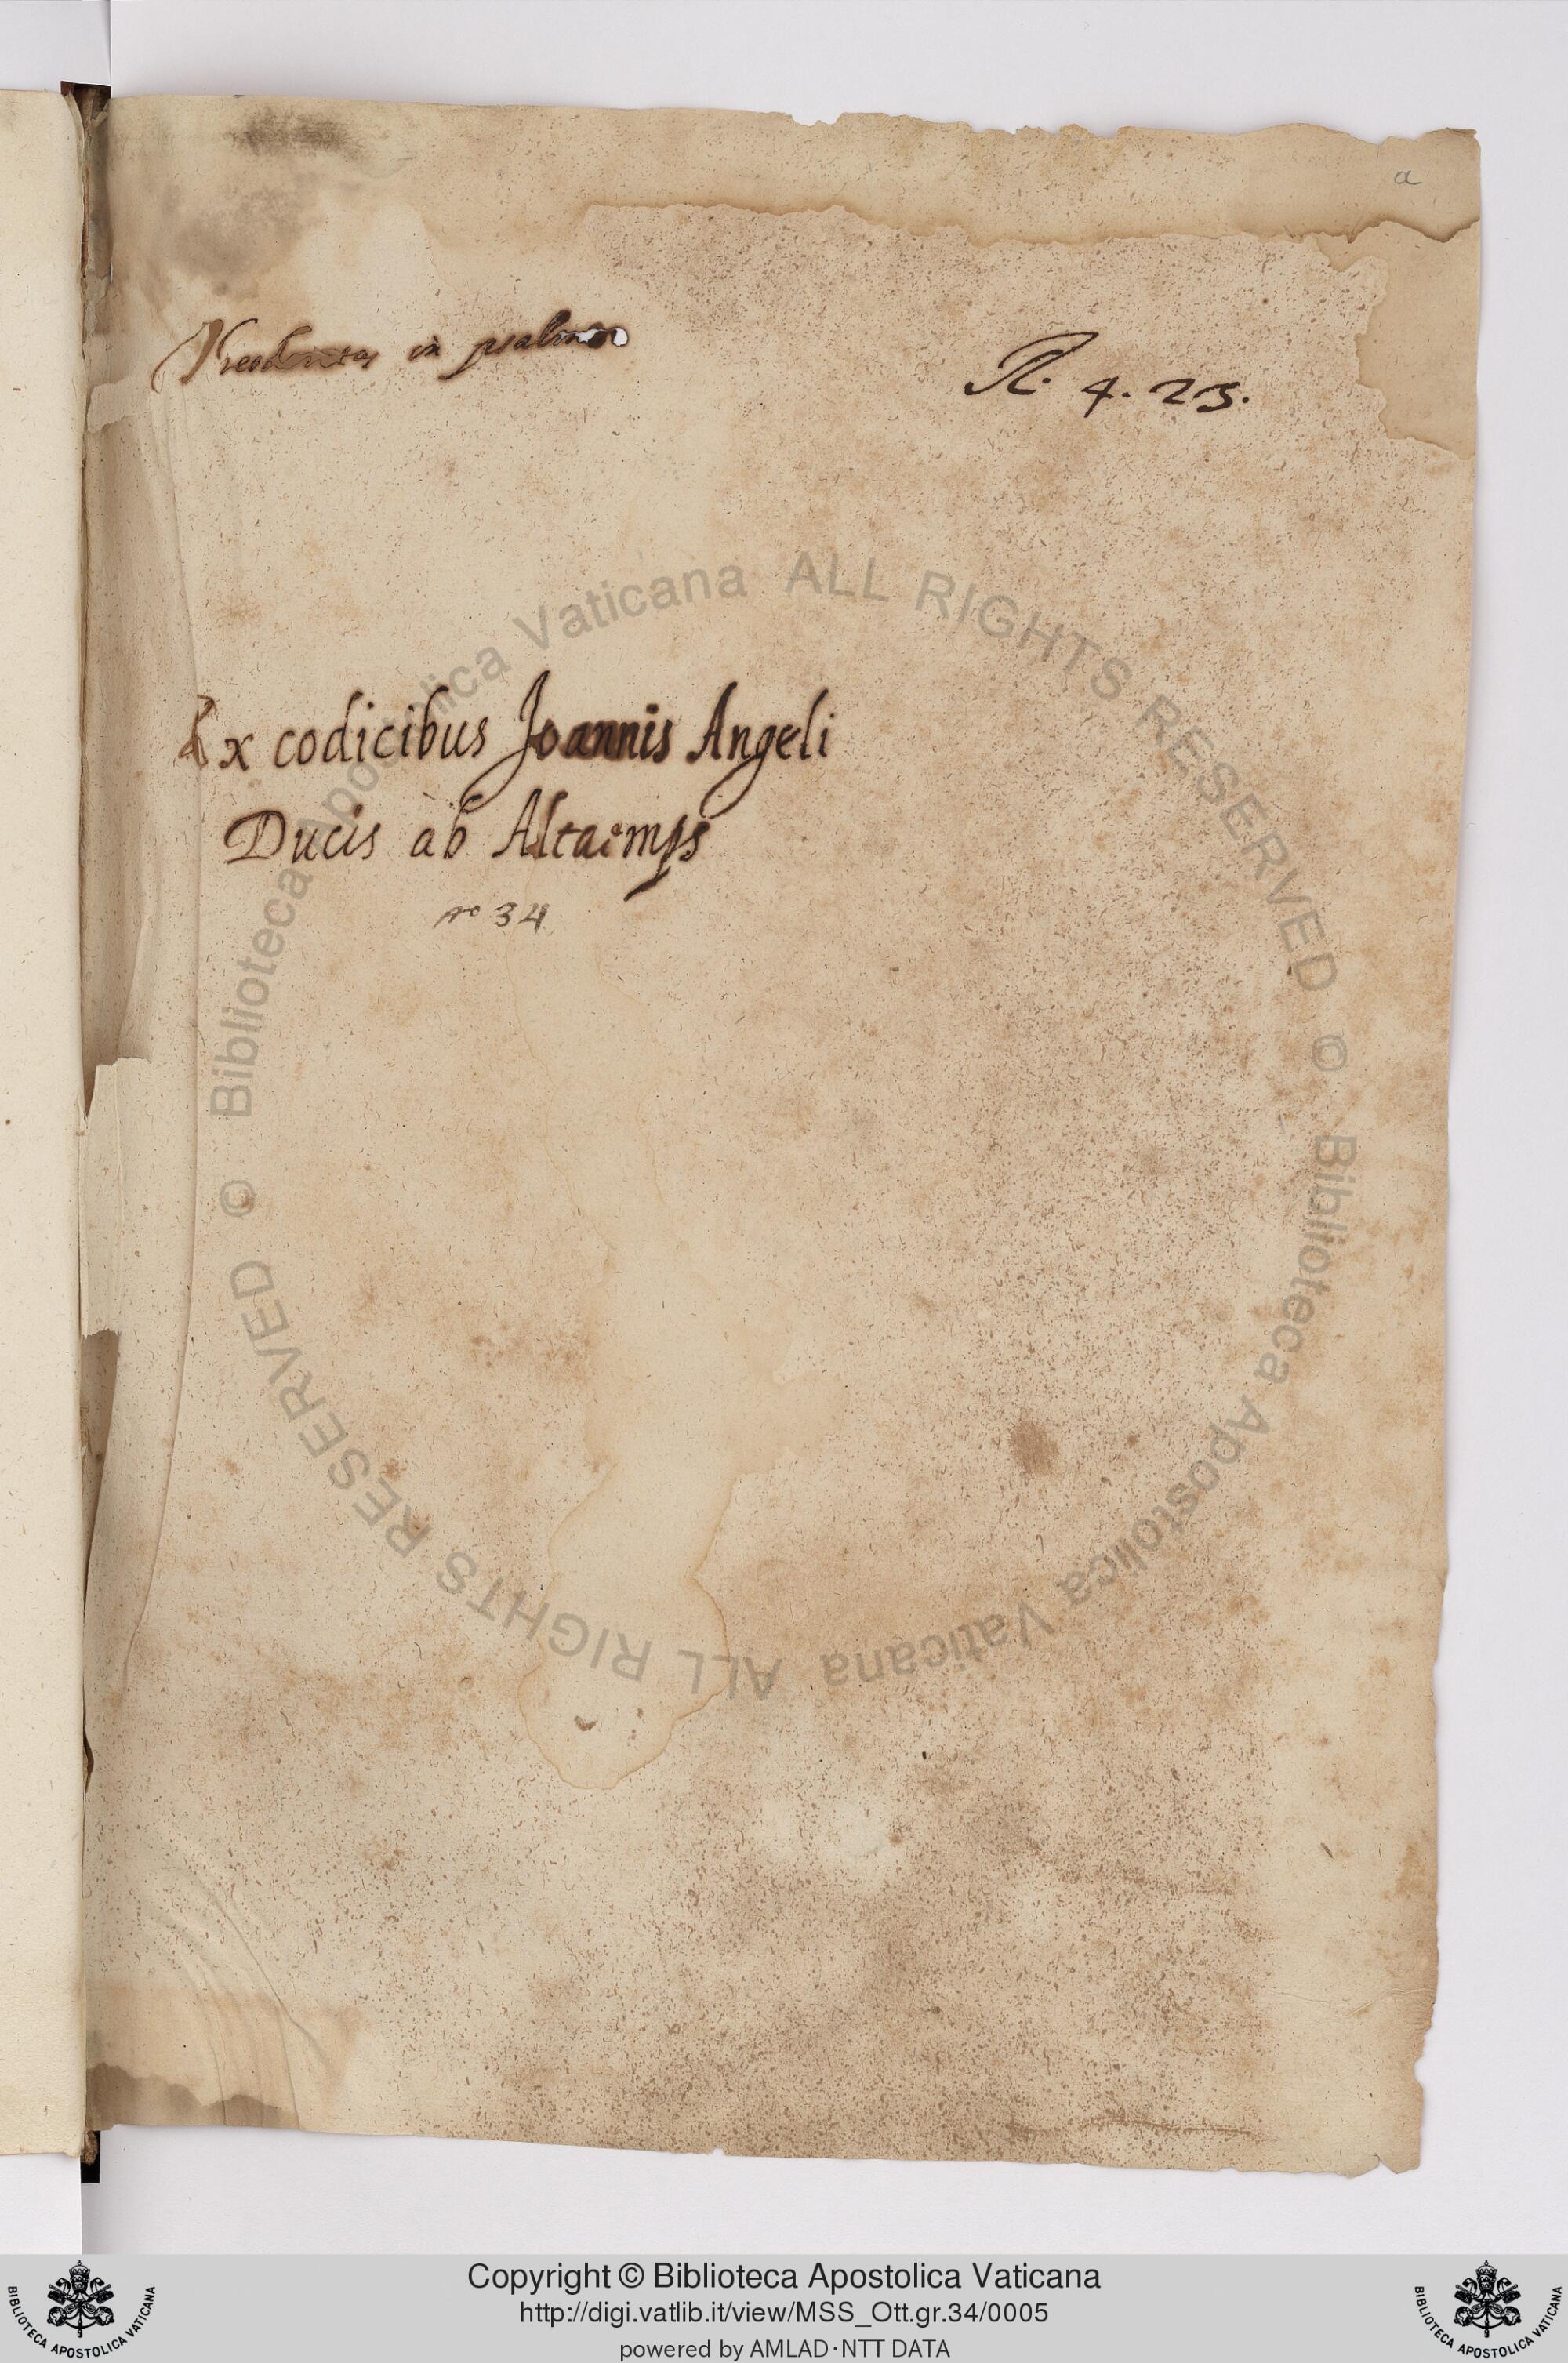 a
Theodoretus in psalmos
R. 4. 25.
Ex codicibus Joannis Angeli
Ducis ab Altaemps
nº 34
© Biblioteca Apostolica Vaticana ALL RIGHTS RESERVED © Biblioteca Apostolica Vaticana ALL RIGHTS RESERVED
BIBLIOTECA APOSTOLICA VATICANA
Copyright © Biblioteca Apostolica Vaticana
http://digi.vatlib.it/view/MSS_Ott.gr.34/0005
powered by AMLAD·NTT DATA
BIBLIOTECA APOSTOLICA VATICANA